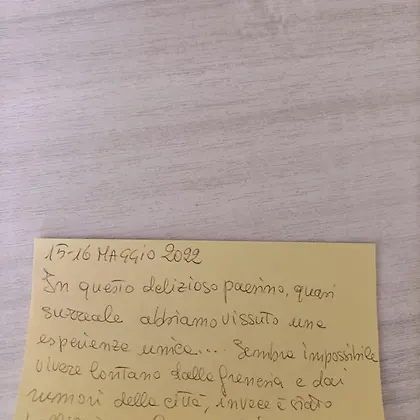 15-16 MAGGIO 2022
In questo delizioso paesino, quasi
surreale abbiamo vissuto una
esperienza unica... Sembra impossibile
vivere lontano dalla frenesia e dai
rumori della città, invece è stato